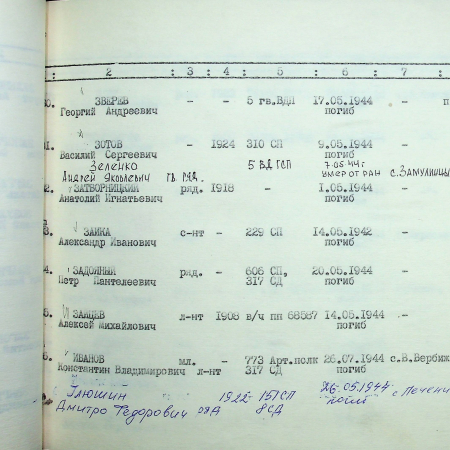 : 2 : 3 : 4 : 5 : 6 : 7 :
0. ЗВЕРЕВ - - 5 гв.ВДП 17.05.1944 - п
Георгий Андреевич погиб
1. ЗОТОВ - 1924 310 СП 9.05.1944 -
Василий Сергеевич погиб
Зеленко 5 ВДГСП 7.05.44г
Андрей Яковлевич гв. ряд. умер от ран с.Замулинцы
2. ЗАТВОРНИЦКИЙ ряд. 1918 - 1.05.1944 -
Анатолий Игнатьевич погиб
3. ЗАИКА с-нт - 229 СП 14.05.1942 -
Александр Иванович погиб
4. ЗАДОЙНЫЙ ряд. - 606 СП, 20.05.1944 -
Петр Пантелеевич 317 СД погиб
5. ЗАЙЦЕВ л-нт 1908 в/ч пп 68587 14.05.1944 -
Алексей Михайлович погиб
6. ИВАНОВ мл. - 773 Арт.полк 26.07.1944 с.В.Вербиж
Константин Владимирович л-нт 317 СД погиб
Илюшин 1922 151СП 26.05.1944 с. Печени
Дмитро Федорович 8СД погиб